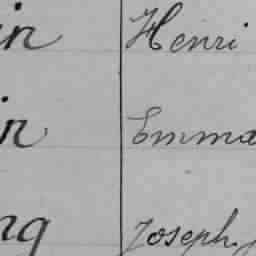 in Henri
in Emma
ng Joseph